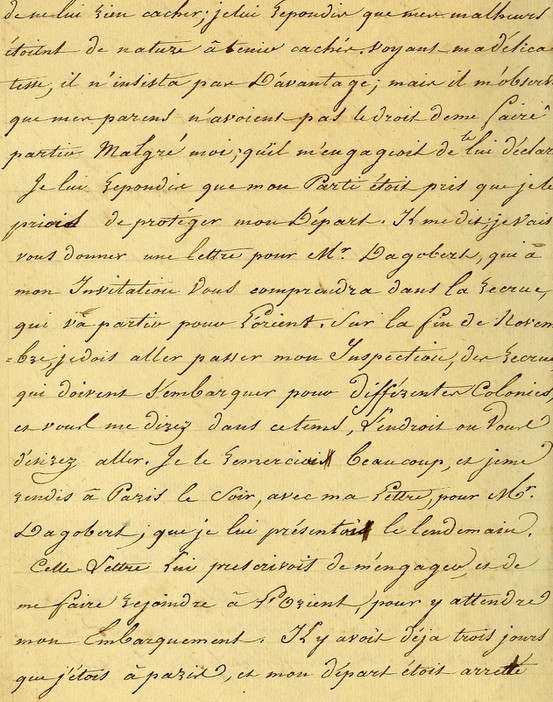 de ne lui rien cacher; je lui repondis que mes malheurs
étoient de nature à tenir cachés. voyant ma délica
tesse, il n'insista pas d'avantage; mais il m'observ
que mes parens n'avoient pas le droit de me faire
partir Malgré moi; qu'il m'engageoit de te lui déclar
Je lui repondis que mon Parti étoit pris que je le
priois de protéger mon Départ. Il me dit; je vais
vous donner une lettre pour Mr. Dagobert, qui à
mon Invitation Vous comprendra dans la recrue,
qui va partir pour L'orient. Sur la fin de Novem
=bre, je dois aller passer mon Inspection, des recrues
qui doivent s'embarquer pour différentes Colonies,
et vous me direz dans ce tems, L'endroit ou Vous
désirez aller. Je le remerciais beaucoup, et je me
rendis à Paris le Soir, avec ma Lettre, pour Mr.
Dagobert; que je lui présentois le lendemain.
Cette Lettre Lui prescrivoit de m'engager, et de
me faire rejoindre à L'Orient, pour y attendre
mon Embarquement. Il y avoit déja trois jours
que j'étois à paris, et mon départ étoit arretté